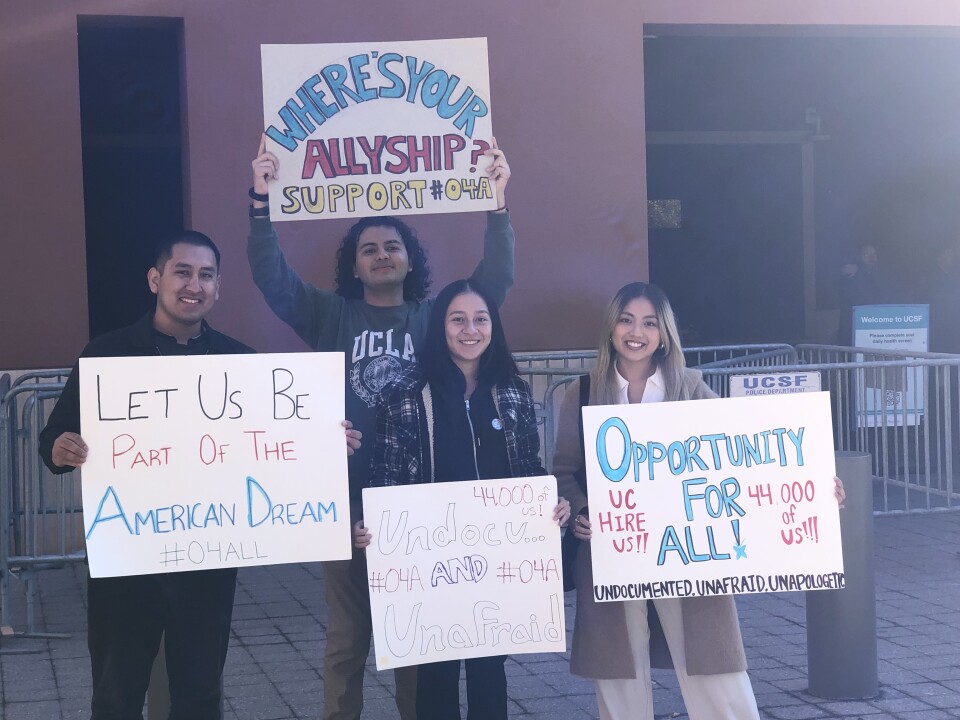 WHERE'S YOUR
ALLYSHIP?
SUPPORT #O4A
UCLA
LET US BE
PART OF THE
AMERICAN DREAM
#O4ALL
44,000 of
us!
Undocu...
#O4A AND #O4A
Unafraid
OPPORTUNITY
FOR
ALL!
UC
HIRE
US!!
44,000
of
us!!!
UNDOCUMENTED.UNAFRAID.UNAPOLOGETIC
Welcome to UCSF
Please complete your
daily health
UCSF
POLICE DEPARTMENT